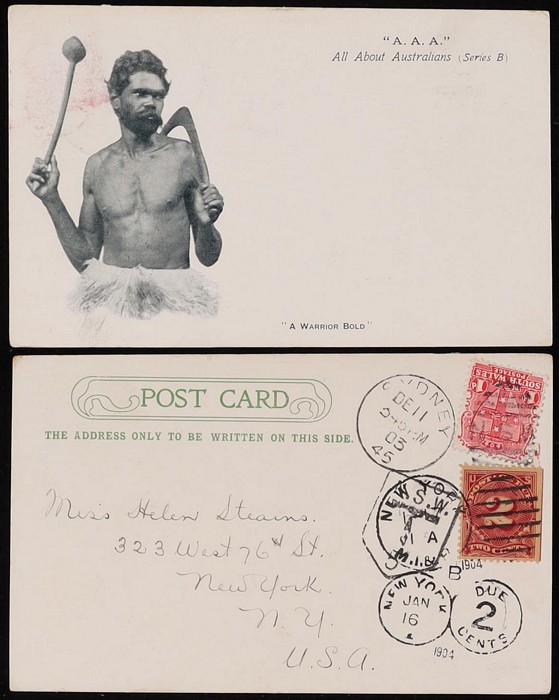 "A. A. A."
All About Australians (Series B)
"A WARRIOR BOLD"
POST CARD
THE ADDRESS ONLY TO BE WRITTEN ON THIS SIDE.
Miss Helen Stearns.
323 West 76th St.
New York.
N. Y.
U. S. A.
SYDNEY
DE 11
03
45
SOUTH WALES
POSTAGE
NEW YORK
N.S.W.
A
2
TWO CENTS
1904
B
NEW YORK
JAN
16
1904
DUE
2
CENTS